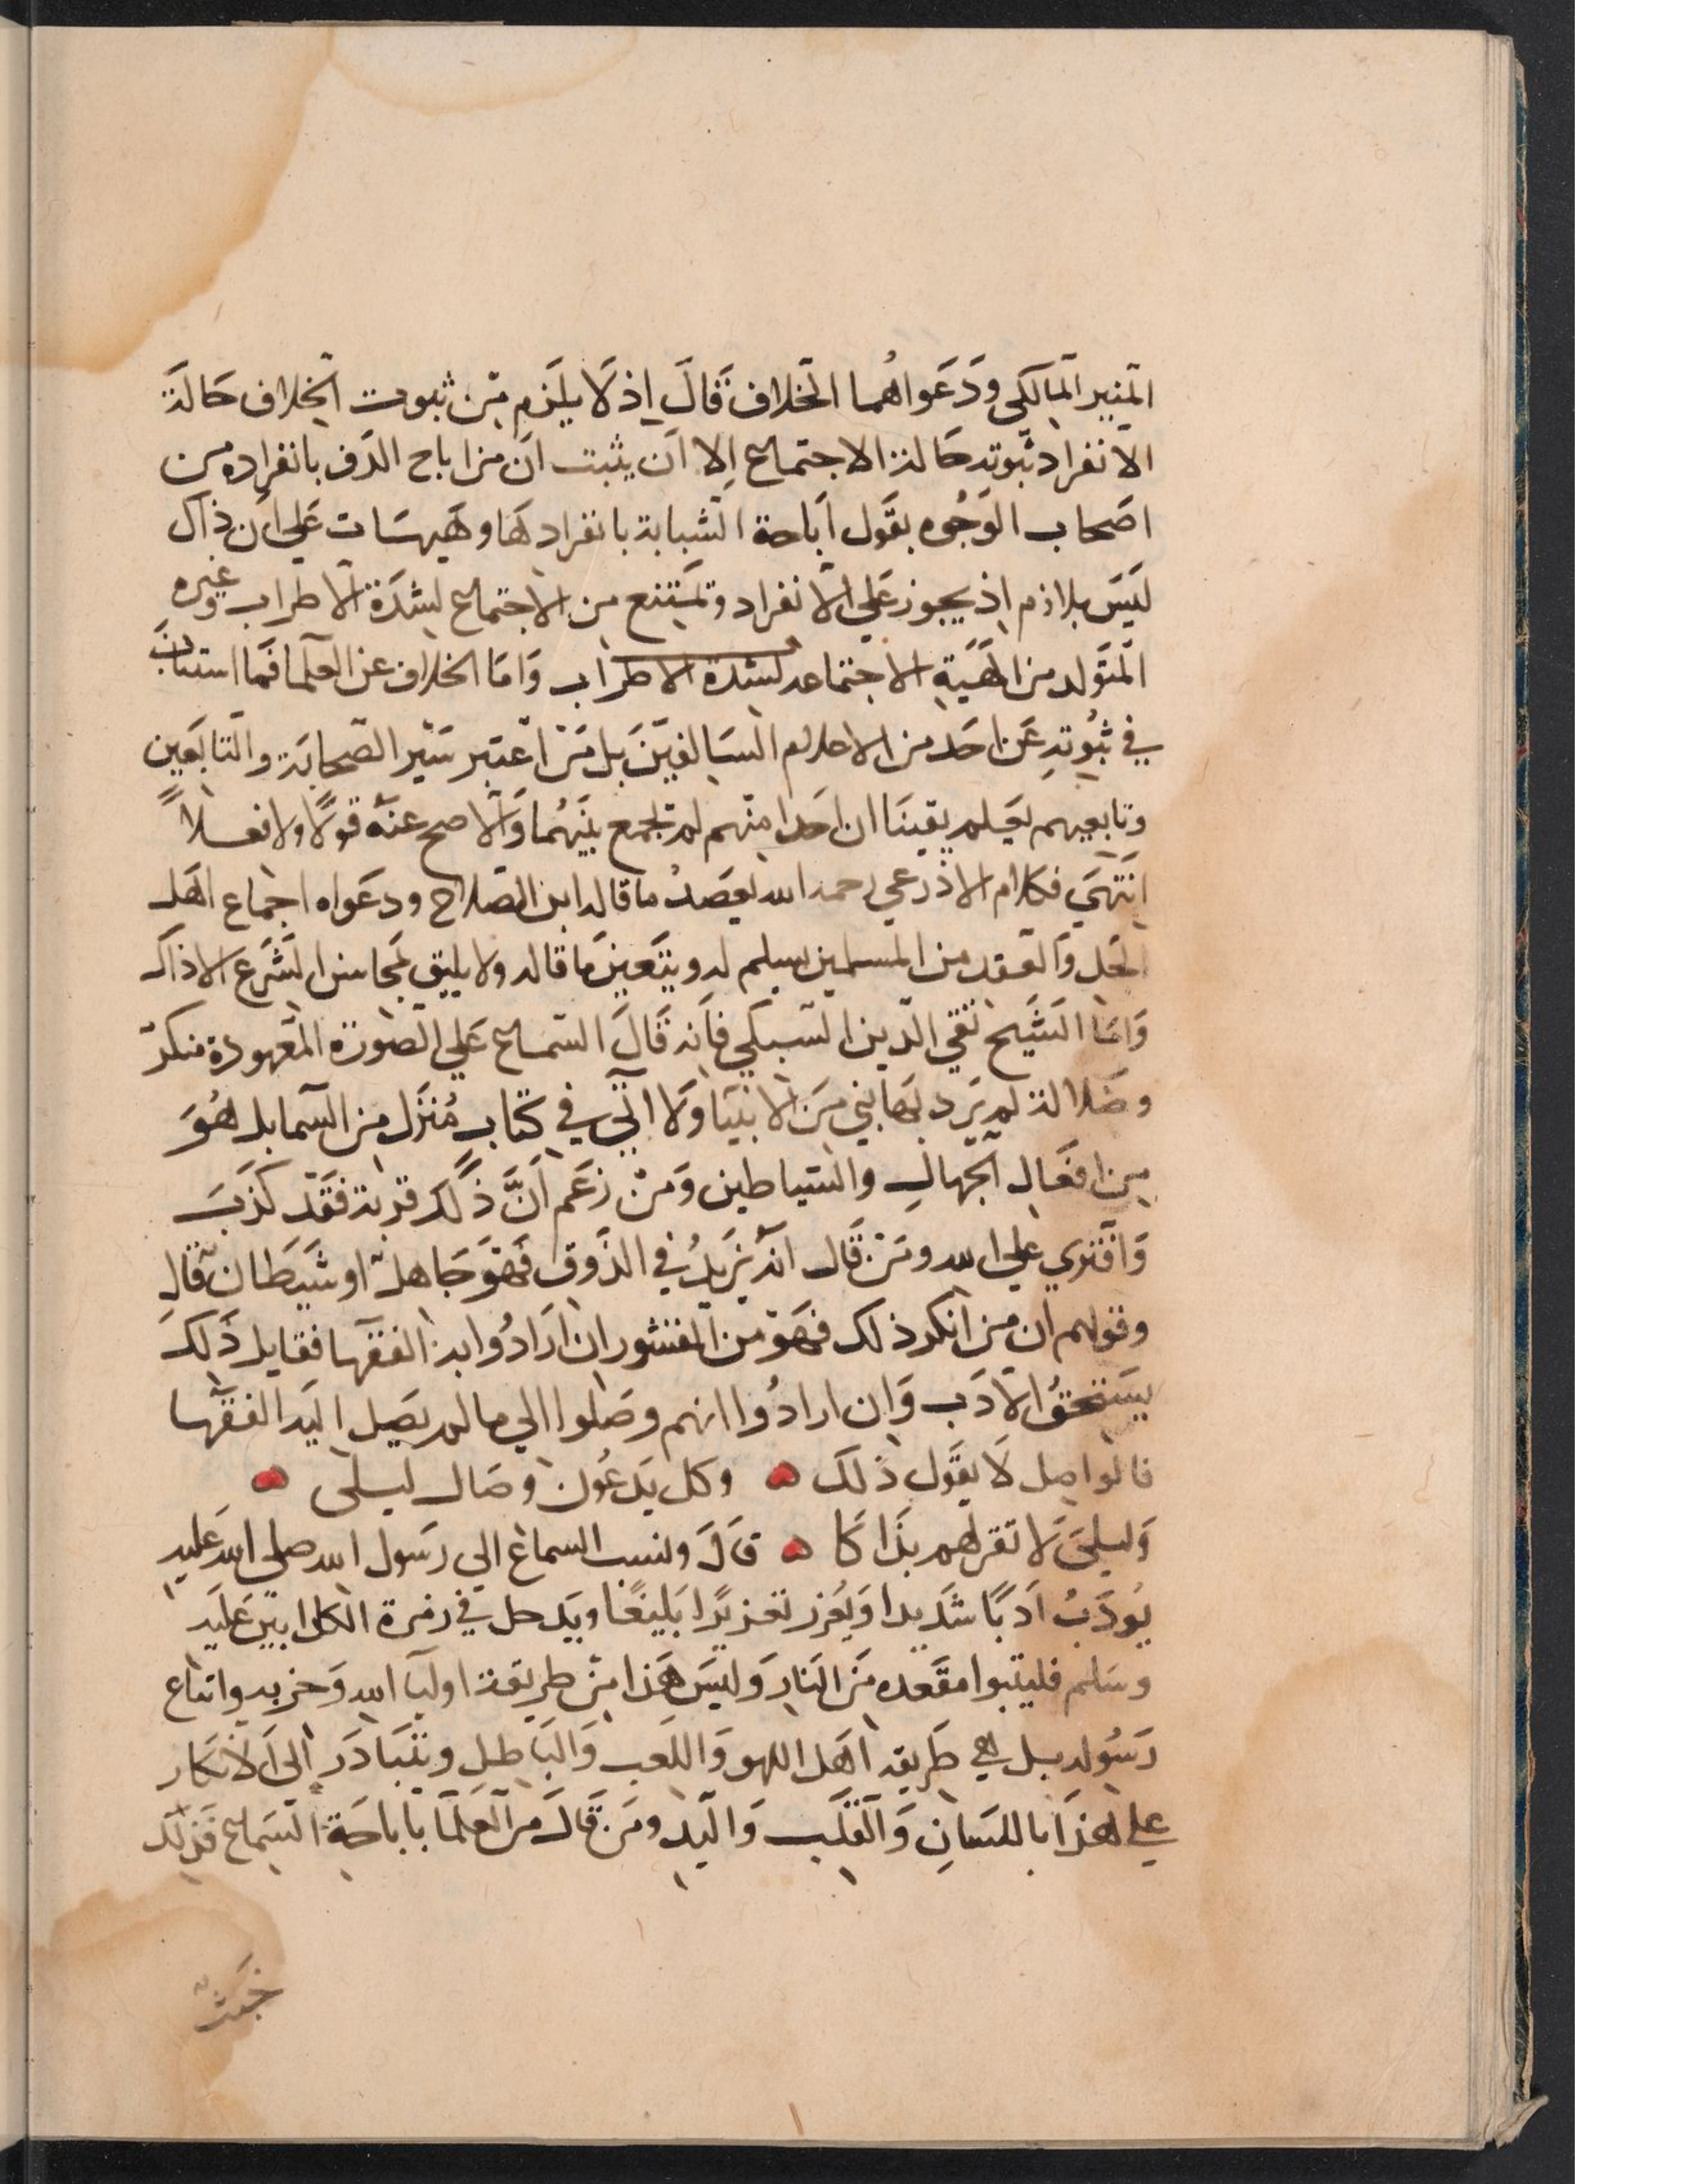 المنير المالكي ودعواهما الخلاف قال إذ لا يلزم من ثبوت الخلاف حالة
الانفراد ثبوته حالة الاجتماع إلا ان يثبت ان من اباح الدف بانفراده من
اصحاب الوجوه يقول اباحة الشبابة بانفرادها وهيهات على ان ذاك
ليس بلازم اذ يجوز على الانفراد وتمتنع من الاجتماع لشدة الاطراب وغيره
المتولد من الهية الاجتماعه لشدة الاطراب واما الخلاف عن العلما فما استتاب
في ثبوته عن احد من الاعلام السالفين بل من اعتبر سير الصحابة والتابعين
وتابعيهم يعلم يقينا ان احدا منهم لم يجمع بينهما والا صح عنه قولا ولا فعلا
انتهى فكلام الاذرعي رحمه الله يعضد ما قاله ابن الصلاح ودعواه اجماع اهل
الحل والعقد من المسلمين يسلم له ويتعين ما قاله ولا يليق بمحاسن الشرع الا ذاك
واما الشيخ تقي الدين السبكي فانه قال السماع على الصورة المعهودة منكر
وضلالة لم يرد بها نبي من الانبيا ولا اتي في كتاب منزل من السما بل هو
من افعال الجهال والشياطين ومن زعم ان ذلك قربة فقد كذب
وافتري على الله ومن قال انه يزيد في الذوق فهو جاهل او شيطان قال
وقولهم ان من انكر ذلك فهو من القشور ان ارادوا به الفقها فقايل ذلك
يستحق الادب وان ارادوا انهم وصلوا الي ما لم يصل اليه الفقها
فالواصل لا يقول ذلك وكل يدعون وصال ليلى
وليلى لا تقر لهم بذاكا قال ونسب السماع الى رسول الله صلى الله عليه
يودب ادبا شديدا ويعزر تعزيرا بليغا ويدخل في زمرة الكاذبين عليه
وسلم فليتبوا مقعده من النار وليس هذا من طريقة اوليا الله وحزبه واتباع
رسوله بل هي طريقة اهل اللهو واللعب والباطل ويتبادر الى الانكار
على هذا باللسان والقلب واليد ومن قال من العلما باباحة السماع فذلك